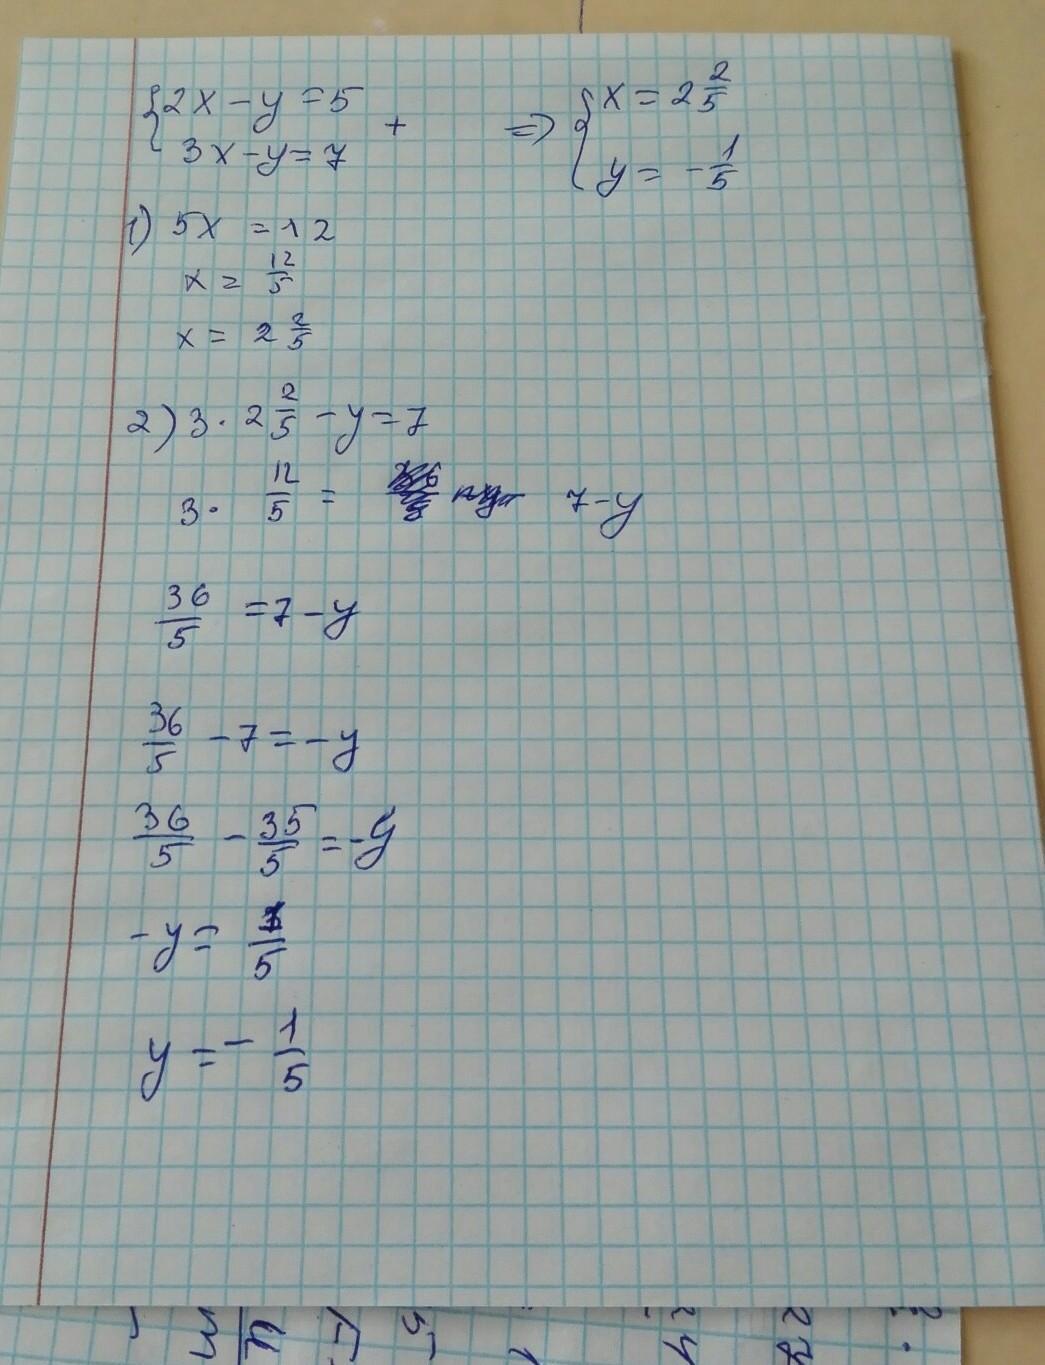 {2x - y = 5
3x - y = 7
+
=> {x = 2 2/5
y = - 1/5
1) 5x = 12
x = 12/5
x = 2 2/5
2) 3 · 2 2/5 - y = 7
3 · 12/5 = 7 - y
36/5 = 7 - y
36/5 - 7 = - y
36/5 - 35/5 = - y
- y = 1/5
y = - 1/5